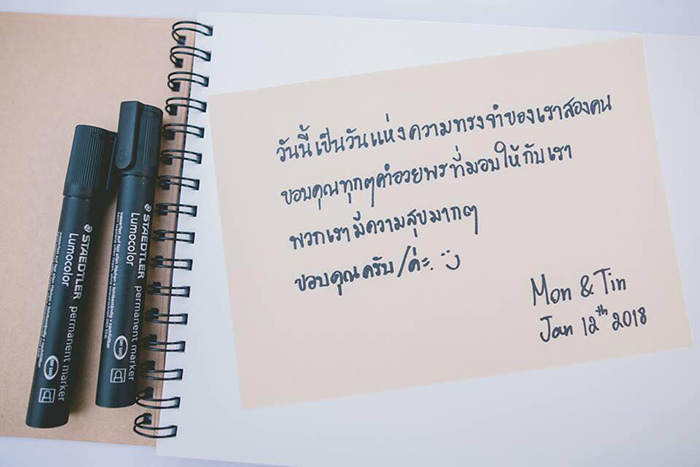 วันนี้เป็นวันแห่งความทรงจำของเราสองคน
ขอบคุณทุกๆคำอวยพรที่มอบให้กับเรา
พวกเรามีความสุขมากๆ
ขอบคุณครับ/ค่ะ :)
Mon & Tin
Jan 12th 2018
STAEDTLER
Lumocolor
permanent marker
STAEDTLER
Lumocolor
permanent marker